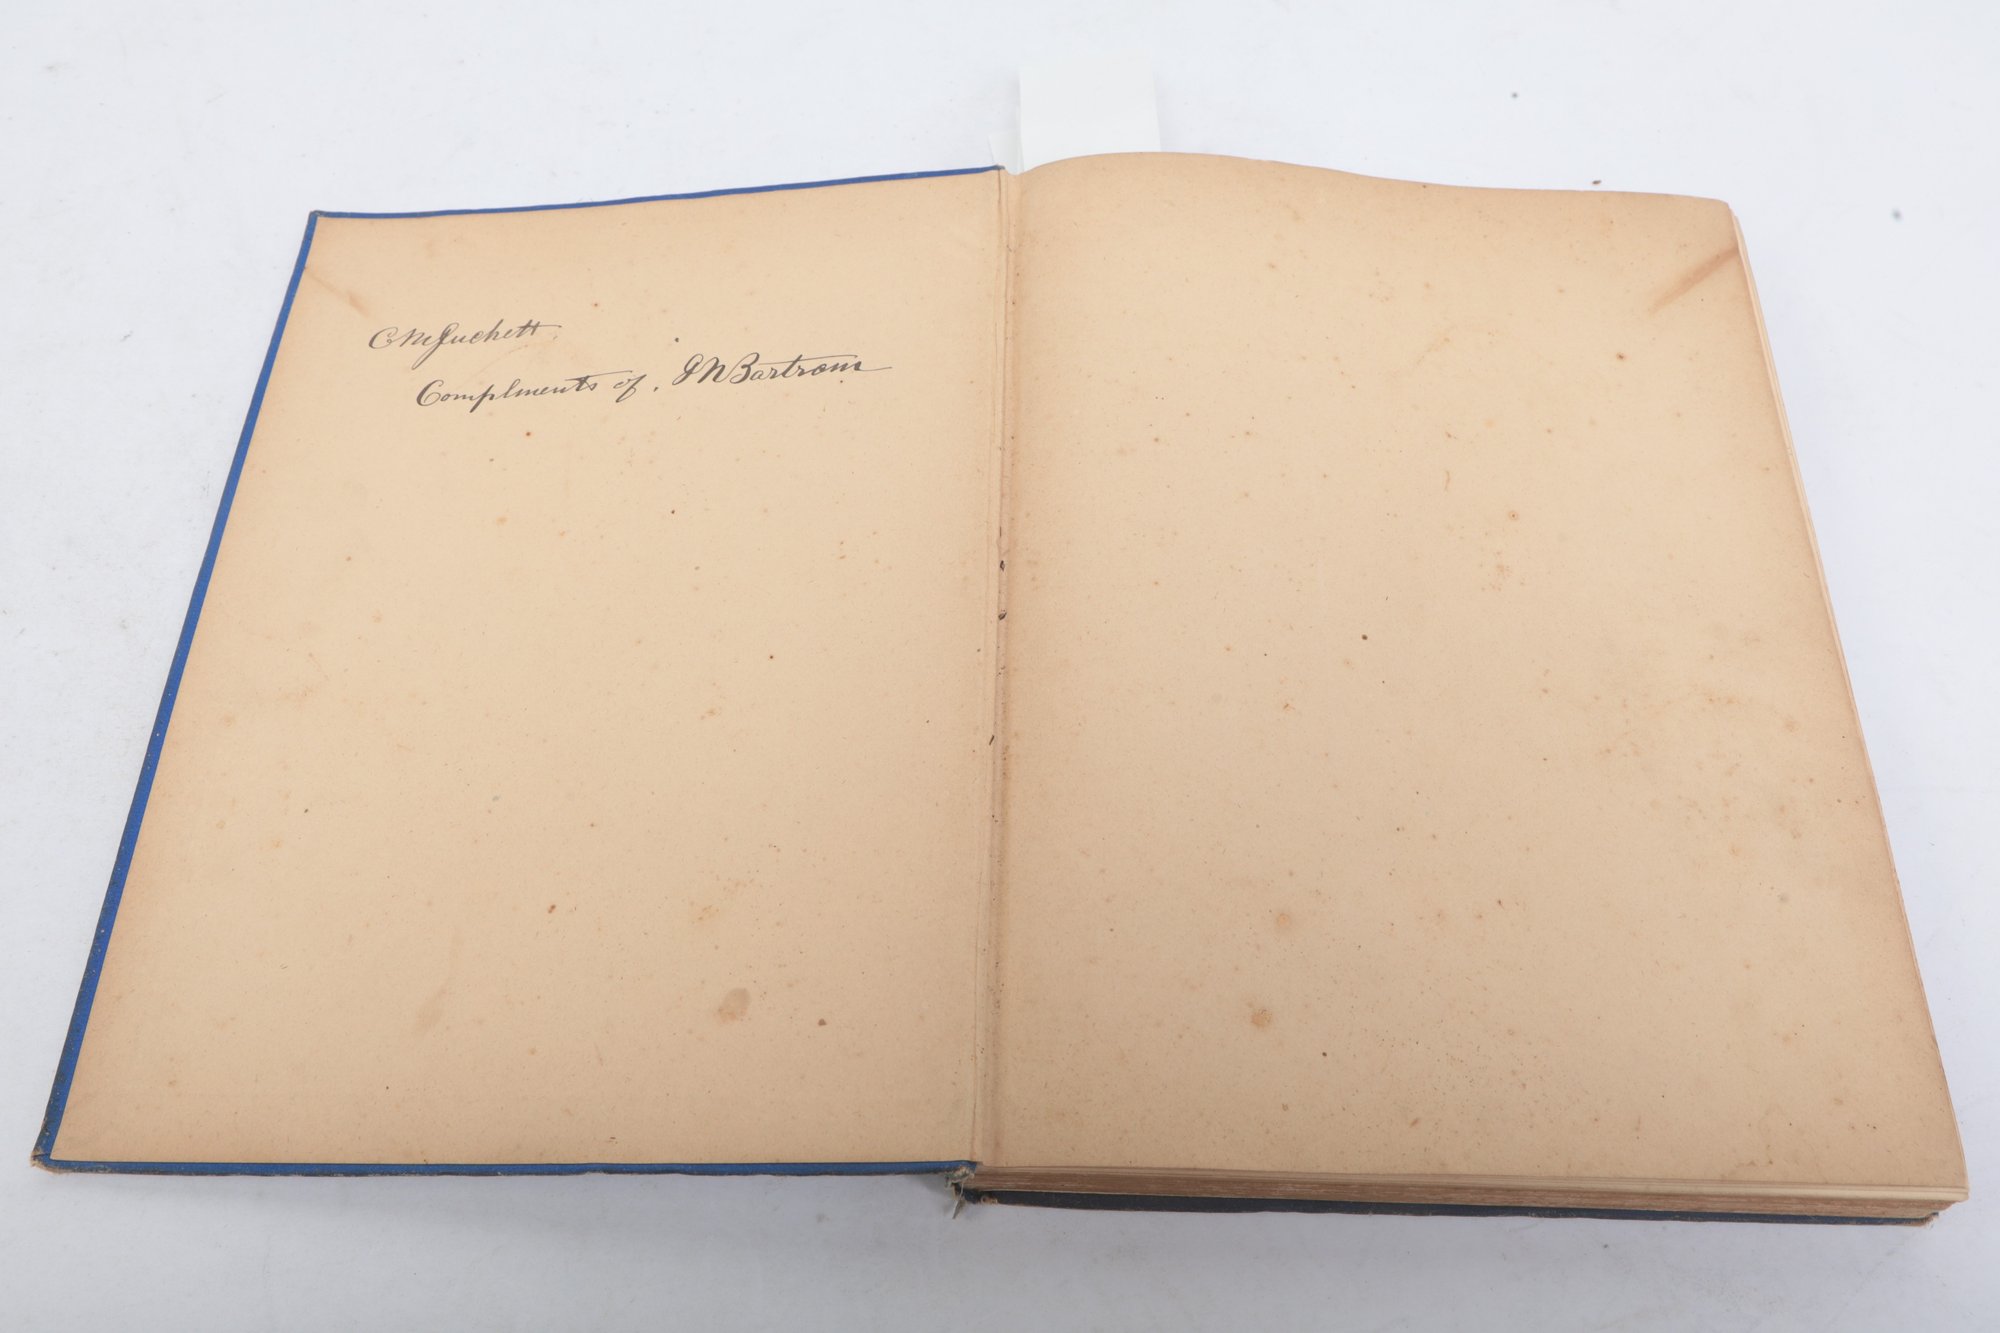 C M Guchett
Complments of. J N Bartram